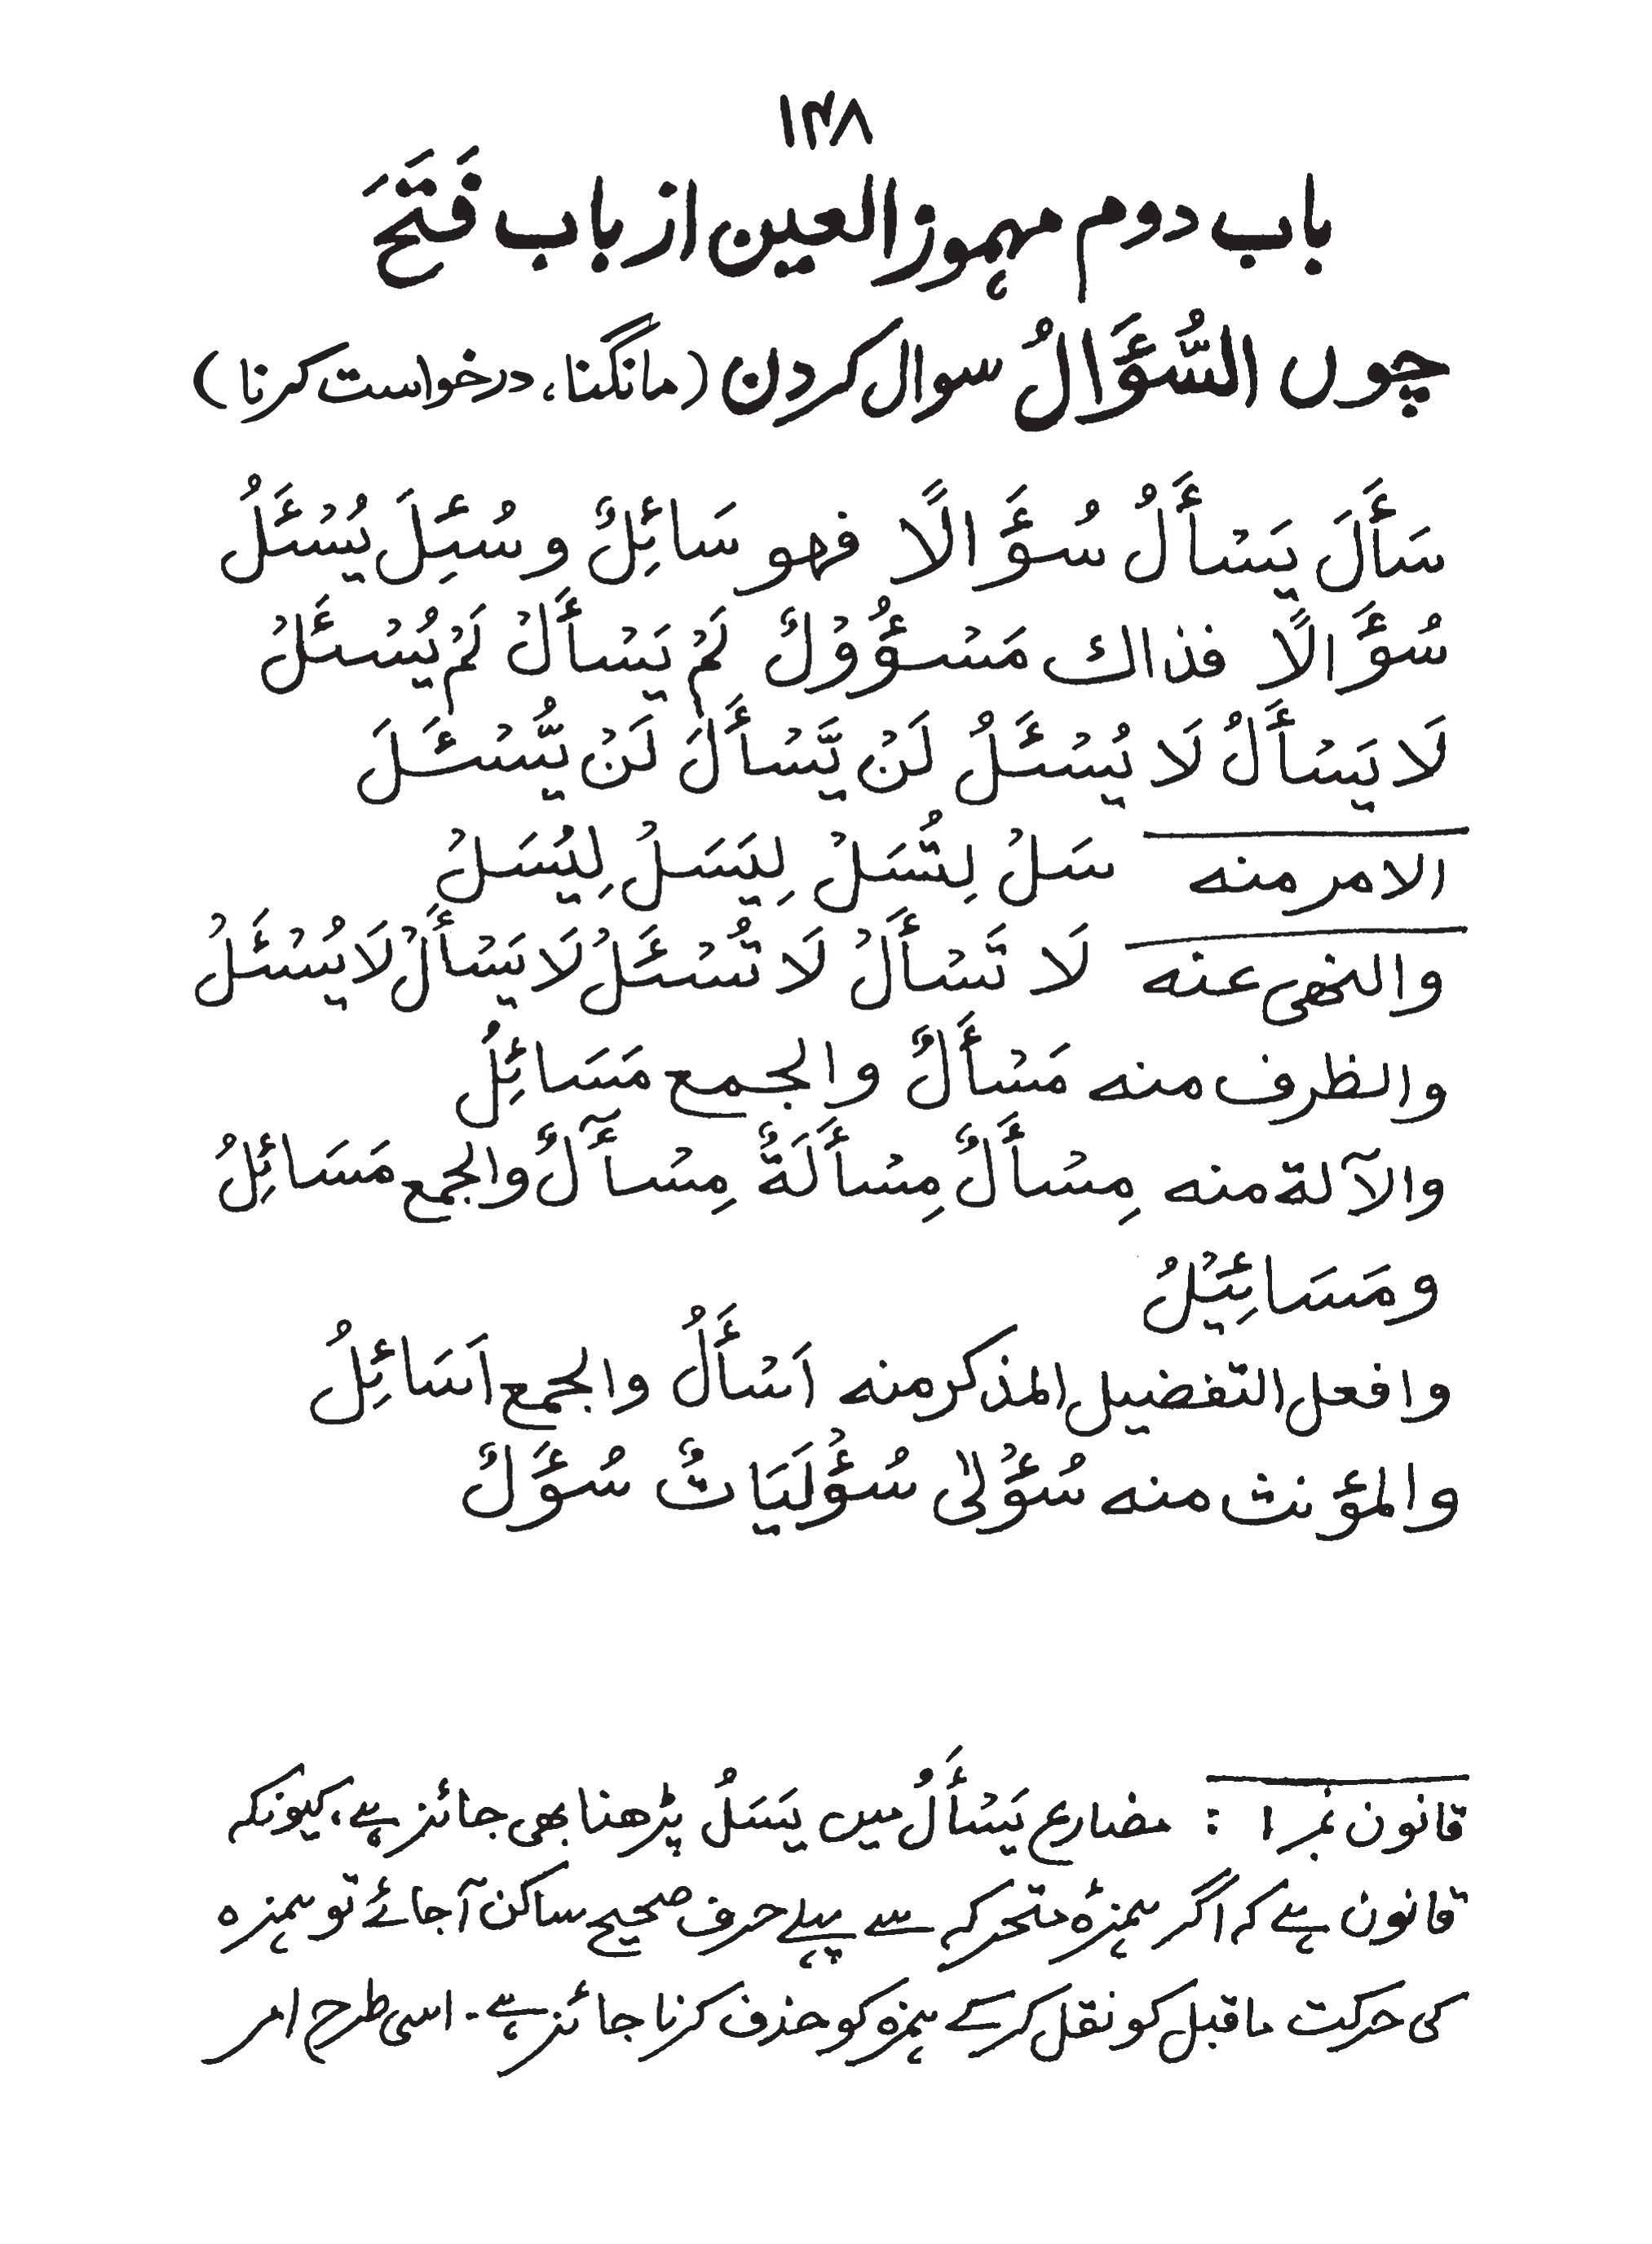 ۱۴۸
باب دوم مہموز العین از باب فَتَحَ
چوں السُّؤَالُ سوال کردن (مانگنا، درخواست کرنا)
سَأَلَ يَسْأَلُ سُؤَالًا فهو سَائِلٌ و سُئِلَ يُسْئَلُ
سُؤَالًا فذاك مَسْؤُوْلٌ لَمْ يَسْأَلْ لَمْ يُسْئَلْ
لَا يَسْأَلُ لَا يُسْئَلُ لَنْ يَّسْأَلَ لَنْ يُّسْئَلَ
الامر منه سَلْ لِتُسَلْ لِيَسَلْ لِيُسَلْ
والنهى عنه لَا تَسْأَلْ لَا تُسْئَلْ لَا يَسْأَلْ لَا يُسْئَلْ
والظرف منه مَسْأَلٌ والجمع مَسَائِلُ
والآلة منه مِسْأَلٌ مِسْأَلَةٌ مِسْآلٌ والجمع مَسَائِلُ
و مَسَائِيْلُ
وافعل التفضيل المذكر منه اَسْأَلُ والجمع اَسَائِلُ
والمؤنث منه سُؤْلٰى سُؤْلَيَاتٌ سُؤَلٌ
قانون نمبر ۱ : مضارع يَسْأَلُ میں يَسَلُ پڑھنا بھی جائز ہے، کیونکہ
قانون ہے کہ اگر ہمزۂ متحرکہ سے پہلے حرف صحیح ساکن آجائے تو ہمزہ
کی حرکت ماقبل کو نقل کرکے ہمزہ کو حذف کرنا جائز ہے۔ اسی طرح امر